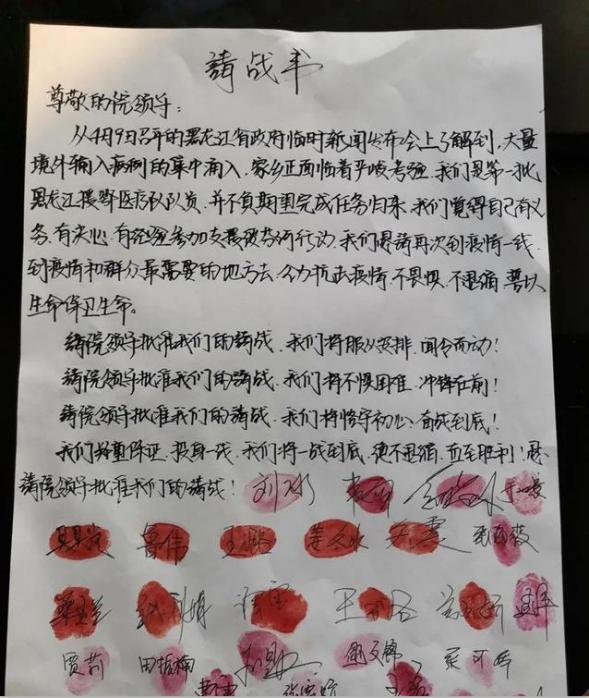 請战书
尊敬的院领导：
从4月9日召开的黑龙江省政府临时新闻发布会上了解到，大量
境外输入病例的集中涌入，家乡正面临着严峻考验，我们是第一批
黑龙江援鄂医疗队队员，并不负期望完成任务归来，我们觉得自己有义
务、有决心、有经验参加支援绥芬河行动，我们恳请再次到疫情一线，
到疫情和群众最需要的地方去，全力抗击疫情，不畏惧、不退缩，誓以
生命保卫生命。
請院领导批准我们的請战，我们将服从安排，闻令而动！
請院领导批准我们的請战，我们将不惧困难，冲锋在前！
請院领导批准我们的請战，我们将恪守初心，奋战到底！
我们郑重保证，投身一线，我们将一战到底，绝不退缩，直至胜利！恳
請院领导批准我们的請战！
鲁伟
贾莉 田振楠